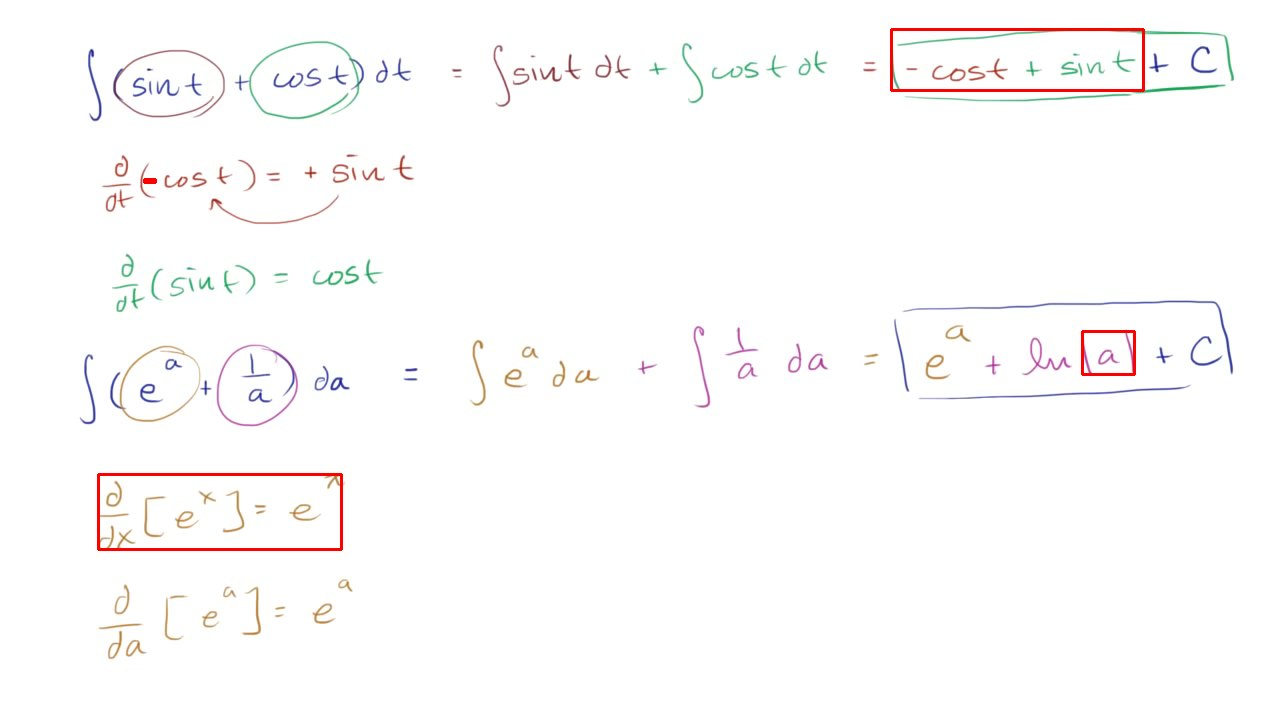 ∫(sin t + cos t) dt = ∫ sin t dt + ∫ cos t dt = - cos t + sin t + C
∂/∂t (- cos t) = + sin t
∂/∂t (sin t) = cos t
∫(e^a + 1/a) da = ∫ e^a da + ∫ 1/a da = e^a + ln |a| + C
∂/∂x [e^x] = e^x
∂/∂a [e^a] = e^a